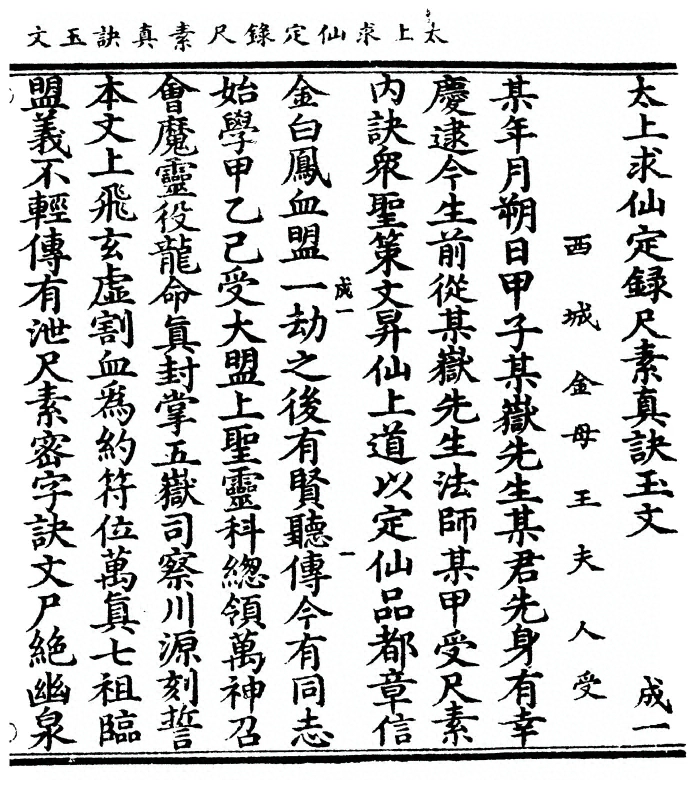 太上求仙定錄尺素真訣玉文
太上求仙定録尺素真訣玉文 成一
西城金母王夫人受
某年月朔日甲子某嶽先生某君先身有幸
慶逮今生前從某嶽先生法師某甲受尺素
内訣衆聖策文昇仙上道以定仙品都章信
金白鳳血盟一劫之後有賢聽傳今有同志
成一 一
始學甲乙已受大盟上聖靈科總領萬神召
會魔靈役龍命真封掌五嶽司察川源刻誓
本文上飛玄虛割血爲約符位萬真七祖臨
盟義不輕傳有泄尺素密字訣文尸絶幽泉